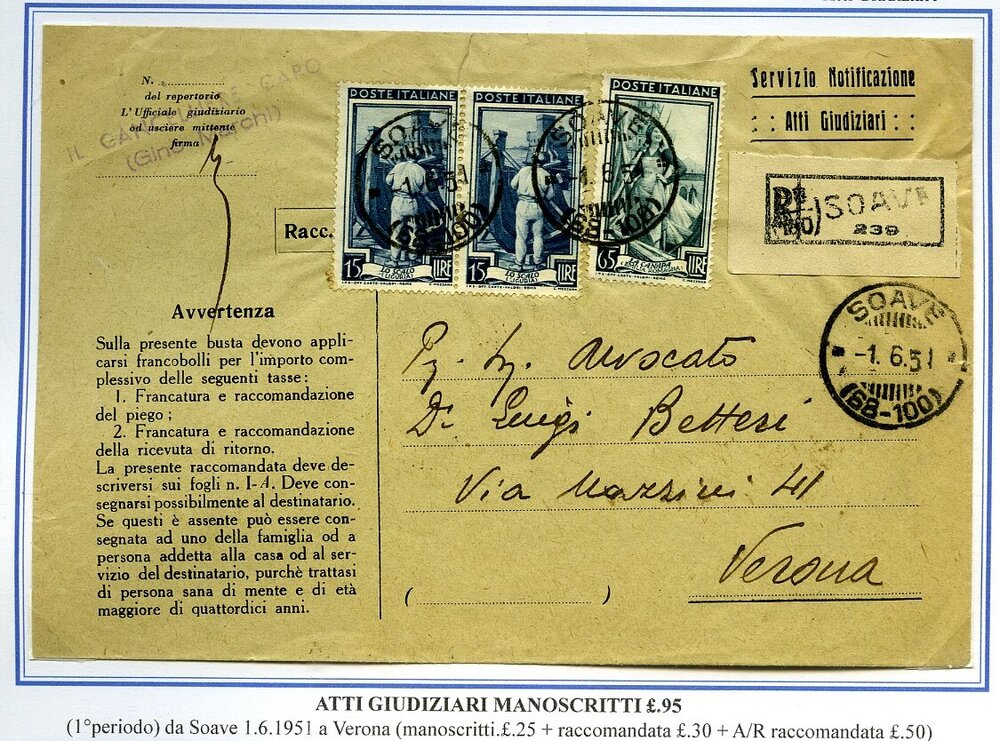 N. ....................
del repertorio
L'Ufficiale giudiziario
od usciere mittente
firma
IL CANCELLIERE CAPO
(Gino Marchi)
Racc.
POSTE ITALIANE
15 LIRE
LO SCALO
(LIGURIA)
POSTE ITALIANE
15 LIRE
LO SCALO
(LIGURIA)
POSTE ITALIANE
65 LIRE
LA CANAPA
SOAVE
-1.6.51
(68-100)
SOAVE
-1.6.51
(68-100)
Servizio Notificazione
: : Atti Giudiziari : :
SOAVE
239
SOAVE
-1.6.51
(68-100)
Avvertenza
Sulla presente busta devono appli-
carsi francobolli per l'importo com-
plessivo delle seguenti tasse :
1. Francatura e raccomandazione
del piego ;
2. Francatura e raccomandazione
della ricevuta di ritorno.
La presente raccomandata deve de-
scriversi sui fogli n. I-A. Deve con-
segnarsi possibilmente al destinatario.
Se questi è assente può essere con-
segnata ad uno della famiglia od a
persona addetta alla casa od al ser-
vizio del destinatario, purchè trattasi
di persona sana di mente e di età
maggiore di quattordici anni.
Avvocato
Dr Luigi Betteri
Via Mazzini 41
Verona
( .................... )
ATTI GIUDIZIARI MANOSCRITTI £.95
(1°periodo) da Soave 1.6.1951 a Verona (manoscritti.£.25 + raccomandata £.30 + A/R raccomandata £.50)